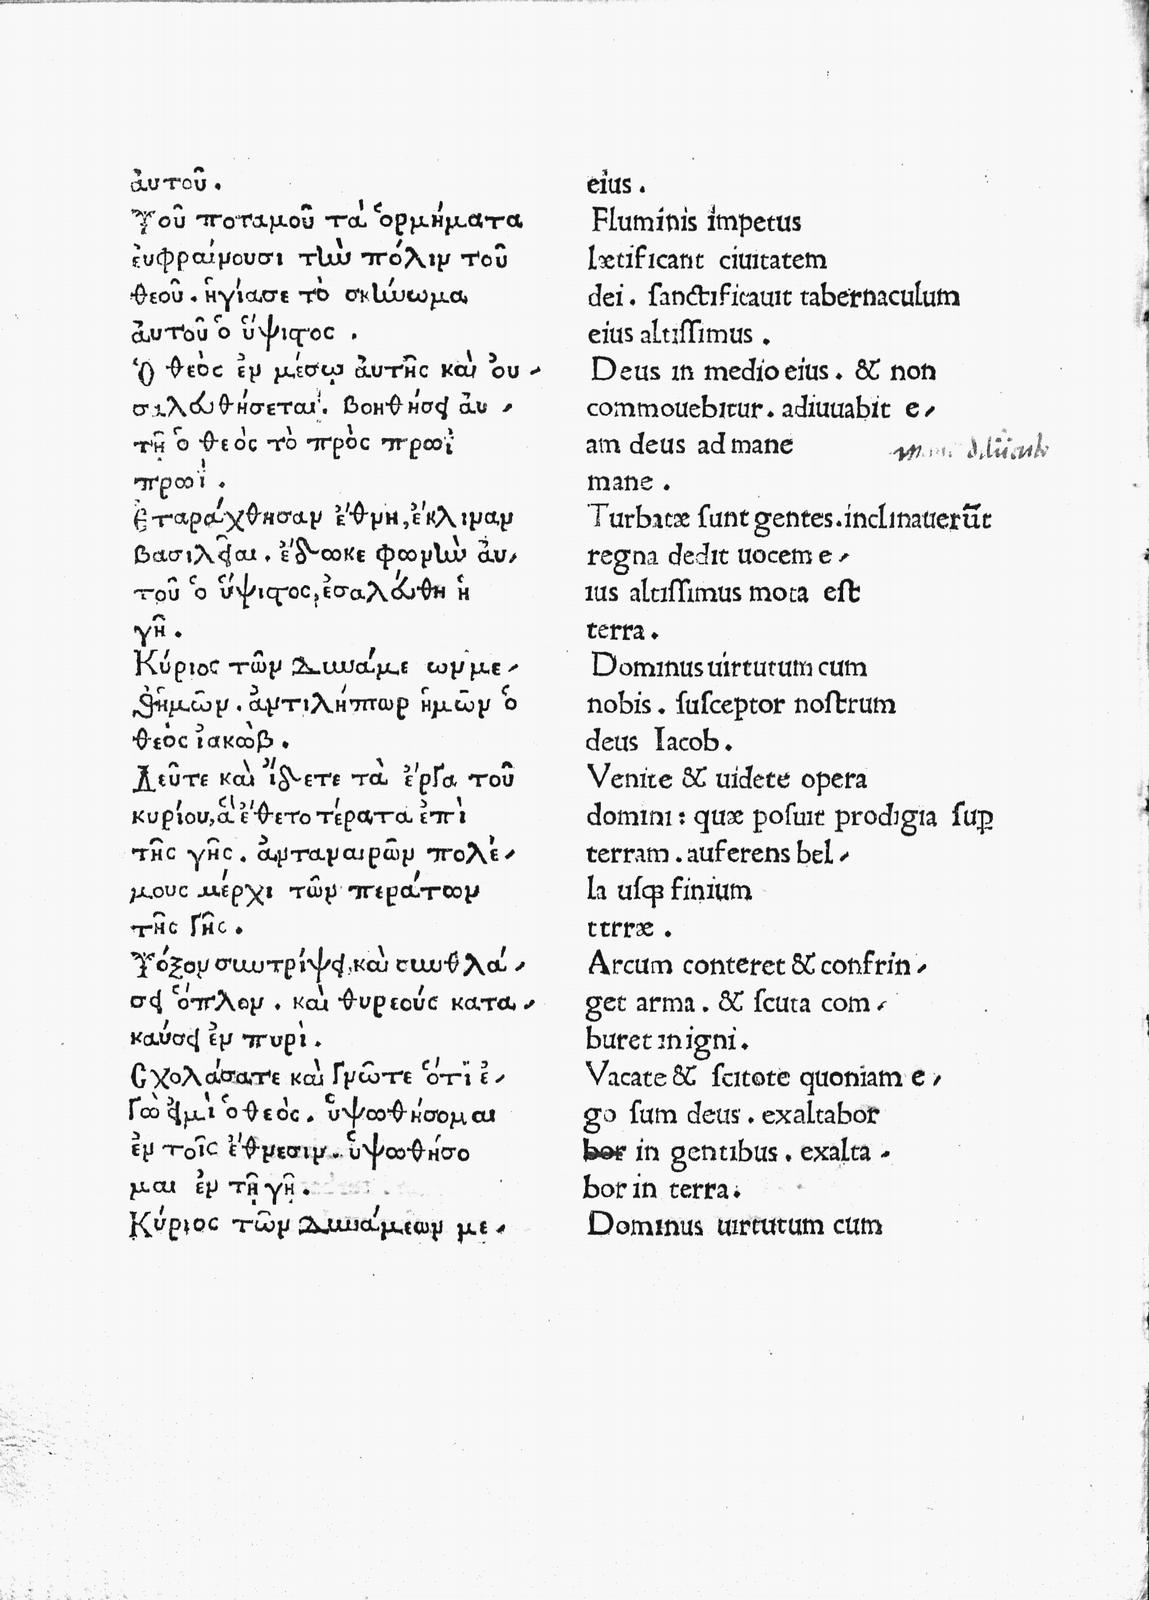 ἀυτοῦ.
Τοῦ ποταμοῦ τὰ ὁρμήματα
ἐυφραίνουσι τὴν πόλιν τοῦ
θεοῦ. ἡγίασε τὸ σκήνωμα
ἀυτοῦ ὁ ὕψιστος.
Ὁ θεὸς ἐν μέσῳ ἀυτῆς καὶ ὀυ-
σαλευθήσεται. βοηθήσει ἀυ-
τῇ ὁ θεὸς τὸ πρὸς πρωὶ
πρωί.
Ἐταράχθησαν ἔθνη, ἔκλιναν
βασιλεῖαι. ἔδωκε φωνὴν ἀυ-
τοῦ ὁ ὕψιστος, ἐσαλεύθη ἡ
γῆ.
Κύριος τῶν δυνάμε ων με-
θἡμῶν. ἀντιλήπτωρ ἡμῶν ὁ
θεὸς ἰακώβ.
Δεῦτε καὶ ἴδετε τὰ ἔργα τοῦ
κυρίου, ἃ ἔθετο τέρατα ἐπὶ
τῆς γῆς. ἀνταναιρῶν πολέ-
μους μέρχι τῶν περάτων
τῆς γῆς.
Τόξον συντρίψει, καὶ συνθλά-
σει ὅπλον. καὶ θυρεούς κατα-
καύσει ἐν πυρὶ.
Σχολάσατε καὶ γνῶτε ὅτι ἐ-
γώ ειμὶ ὁ θεὸς. ὑψωθήσομαι
ἐν τοῖς ἔθνεσιν. ὑψωθήσο
μαι ἐν τῇ γῇ.
Κύριος τῶν δυνάμεων με-
eius.
Fluminis impetus
lætificant ciuitatem
dei. sanctificauit tabernaculum
eius altissimus.
Deus in medio eius. & non
commouebitur. adiuuabit e-
am deus ad mane
mane.
Turbatæ sunt gentes. inclinauerūt
regna dedit uocem e-
ius altissimus mota est
terra.
Dominus uirtutum cum
nobis. susceptor nostrum
deus Iacob.
Venite & uidete opera
domini: quæ posuit prodigia suꝑ
terram. auferens bel-
la usqꝫ finium
ttrræ.
Arcum conteret & confrin-
get arma. & scuta com-
buret in igni.
Vacate & scitote quoniam e-
go sum deus. exaltabor
bor in gentibus. exalta-
bor in terra.
Dominus uirtutum cum